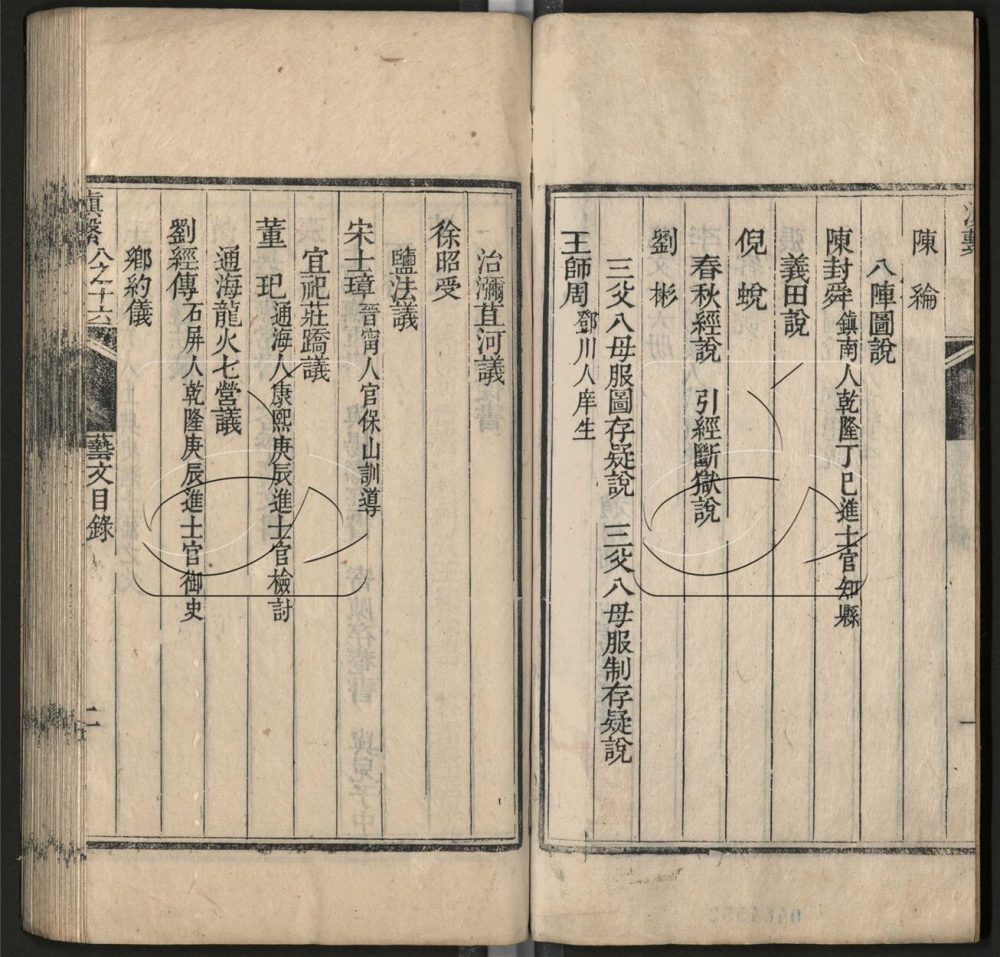 陳綸
八陣圖說
陳封舜 鎮南人乾隆丁巳進士官知縣
義田說
倪蛻
春秋經說 引經斷獄說
劉彬
三父八母服圖存疑說 三父八母服制存疑說
王師周 鄧川人庠生
治瀰苴河議
徐昭受
鹽法議
宋士璋 晉甯人官保山訓導
宜祀莊蹻議
董玘 通海人康熙庚辰進士官檢討
通海龍火七營議
劉經傳 石屏人乾隆庚辰進士官御史
鄉約儀
滇繫 八之十六 藝文目錄 二